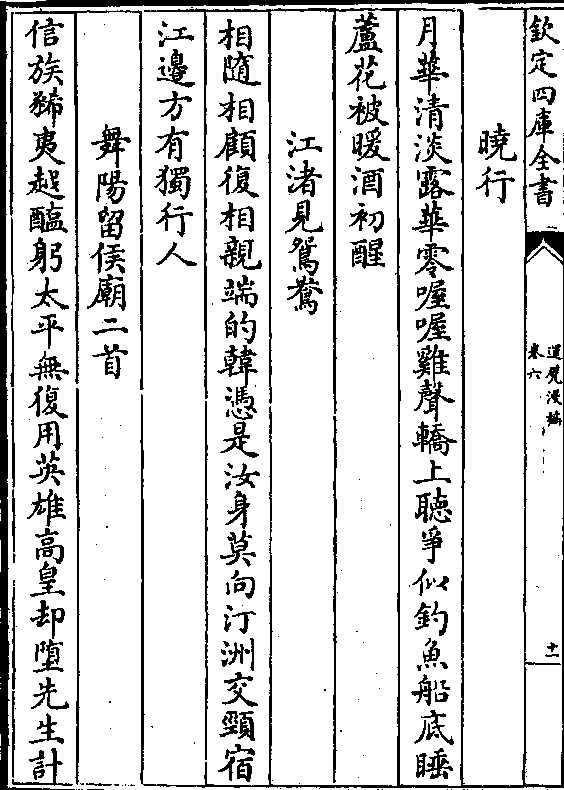 欽定四庫全書
運甓漫稿
卷六
十一
曉行
月華清淡露華零喔喔雞聲轎上聽爭似釣魚船底睡
蘆花被暖酒初醒
江渚見鴛鴦
相隨相顧復相親端的韓憑是汝身莫向汀洲交頸宿
江邊方有獨行人
舞陽留侯廟二首
信族狶夷越醢躬太平無復用英雄高皇却墮先生計